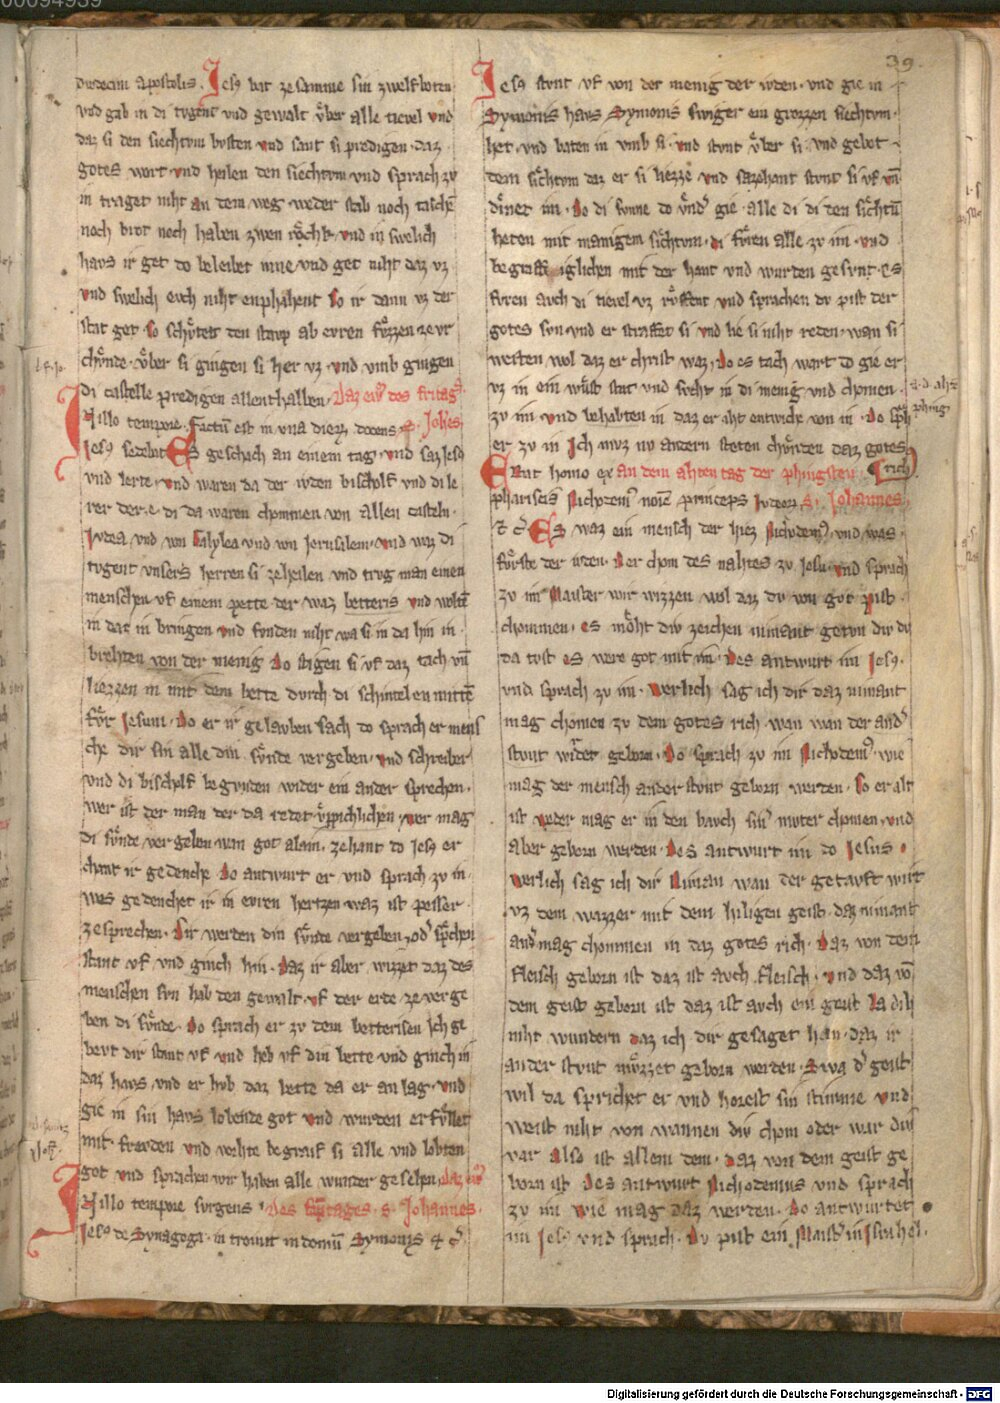 00094939
39.
duodecim apostolis. Jesꝰ bat zesamme sin zwelfboten
vnd gab in di tvgent vnd gewalt vͤber alle tievel vnd
daz si den siechtvm bvsten vnd sant si predigen daz
gotes wort vnd heilen den siechtvm vnd sprach zv
in traget niht an dem weg weder stab noch taschē
noch brot noch haben zwen roͤchk vnd in swelich
havs ir get do beleibet inne vnd get niht daz vz
vnd swelich evch niht enphahent So ir dann vz der
stat get so schvͤtet den stavp ab evren fvͤzzen ze vr
chvͤnde vͤber si gingen si her vz vnd vmb gingen
di castelle predigen allenthalben. Daz ewͥ des fritags
Jn illo tempore. Factū est in vna dierꝝ docens s. Johes
Jesꝰ sedebat Es geschach an einem tag vnd saz Jesꝰ
vnd lerte vnd waren da der ivden bischolf vnd di le
rer der e di da waren chommen von allen casteln
Jvdea vnd von Galylea vnd von Jerusalem vnd waz di
tvgent vnsers herren si zeheilen vnd trvg man einen
menschen vf einem pette der waz betteris vnd woltē
in dar in bringen vnd fvnden niht wa si in da hin in
brehten von der menig do stigen si vf daz tach vn̄
liezzen in mit dem bette dvrch di schintelen mittē
fvͤr Jesum. Do er ir gelavben sach do sprach er mens
che dir sin alle din svͤnde vergeben vnd schreiber
vnd di bischolf begvnden wider ein ander sprechen
wer ist der man der da redet vͤppichlichen wer mag
di svͤnde vergeben wan got alain. zehant do Jesꝰ er
chant ir gedenche Do antwurt er vnd sprach zv in
wes gedenchet ir in evren hertzen waz ist pesser
ze sprechen. Dir werden din svͤnde vergeben odꝰ sp̄chen
stant vf vnd ginch hin. Daz ir aber wizzet daz des
menschen svn hab den gewalt vf der erde ze verge
ben di svͤnde. Do sprach er zv dem betterisen Jch ge
bevt dir stant vf vnd heb vf din bette vnd ginch in
daz havs vnd er hvb daz bette da er an lag vnd
gie in sin havs lobende got vnd wurden erfvͤllet
mit frevden vnd vorhte begraif si alle vnd lobten
got vnd sprachen wir haben alle wunder gesehen. Daz ewͥ
Jn illo tempore svrgens Des samztages s. Johannes.
Jesꝰ de Synagoga. introivit in domū Symonis ⁊ cͭ.
Jesꝰ stvnt vf von der menig der ivden vnd gie in
Symonis havs Symonis swiger ein grozzen siechtvm
het vnd baten in vmb si vnd stvnt vͤber si vnd gebot
dem siͤchtvm daz er si liezze vnd sazehant stvnt si vf vn̄
diͤnet im. Do di svnne do vͤndꝰ gie alle di di ten siͤchtū
heten mit manigem siͤchtvm di fvͤren alle zv im vnd
begraiff iglichen mit der hant vnd wurden gesvnt es
fvren avch di tievel vz rvͤffent vnd sprachen dv pist der
gotes svn vnd er straffet si vnd lie si niht reden wan si
westen wol daz er christ waz Do es tach wart do gie er
vz in ein wuͤst stat vnd svcht in di menig vnd chomen
zv im vnd behabten in daz er iht entwiche von in Do sp̄ch
er zv in Jch mvz nv andern steten chvͤnden daz gotes
Erat homo ex an dem ahten tag der phingsten. rich
phariseis Nichodemꝰ noīe princeps Jvdeorꝝ s. Johannes.
⁊ cͭ. Es waz ein mensch der hiez Nichodemꝰ vnd was
fvͤrste der ivden. Der chom des nahtes zv Jesu vnd sprach
zv im Maister wir wizzen wol daz dv von got pist
chommen es moͤht div zeichen niemant getvn div dv
da tvst es were got mit im. Des antwurt im Jesꝰ.
vnd sprach zv im. Werlich sag ich dir daz nimant
mag chomen zv dem gotes rich wan wan der andꝰ
stvnt wirdet geborn. Do sprach zv im Nichodemꝰ wie
mag der mensch ander stvnt geborn werden. So er alt
ist weder mag er in den bavch sinꝰ mvter chomen vnd
aber geborn werden. Des antwurt im do Jesus.
Werlich sag ich dir Niman wan der getavft wirt
vz dem wazzer mit dem hiligen geist daz nimant
andꝰ mag chommen in daz gotes rich. Daz von dem
fleisch geborn ist daz ist avch fleisch vnd daz vō
dem geist geborn ist daz ist avch ein geist La dih
niht wundern daz ich dir gesaget han daz ir
ander stvnt mvͤzzet geborn werden. Swa dꝰ geist
wil da sprichet er vnd horest sin stimme vnd
weist niht von wannen div chom oder war div
var also ist allem dem. daz von dem geist ge
born ist Des antwurt Nichodemus vnd sprach
zv im wie mag daz werden. Do antwurtet
im Jesꝰ vnd sprach. Dv pist ein Maistꝰ in Jsrahel.
Digitalisierung gefördert durch die Deutsche Forschungsgemeinschaft - DFG